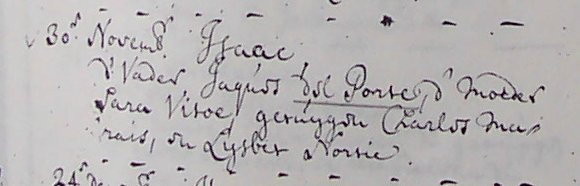 30.ᵉ Novemb.ʳ Isaac
d' Vader Jaques del Porte, d' Moeder
Sara Vitoe, getuÿgen Charlos Ma-
rais, en Lÿsbet Nortie.
24.ᵉ